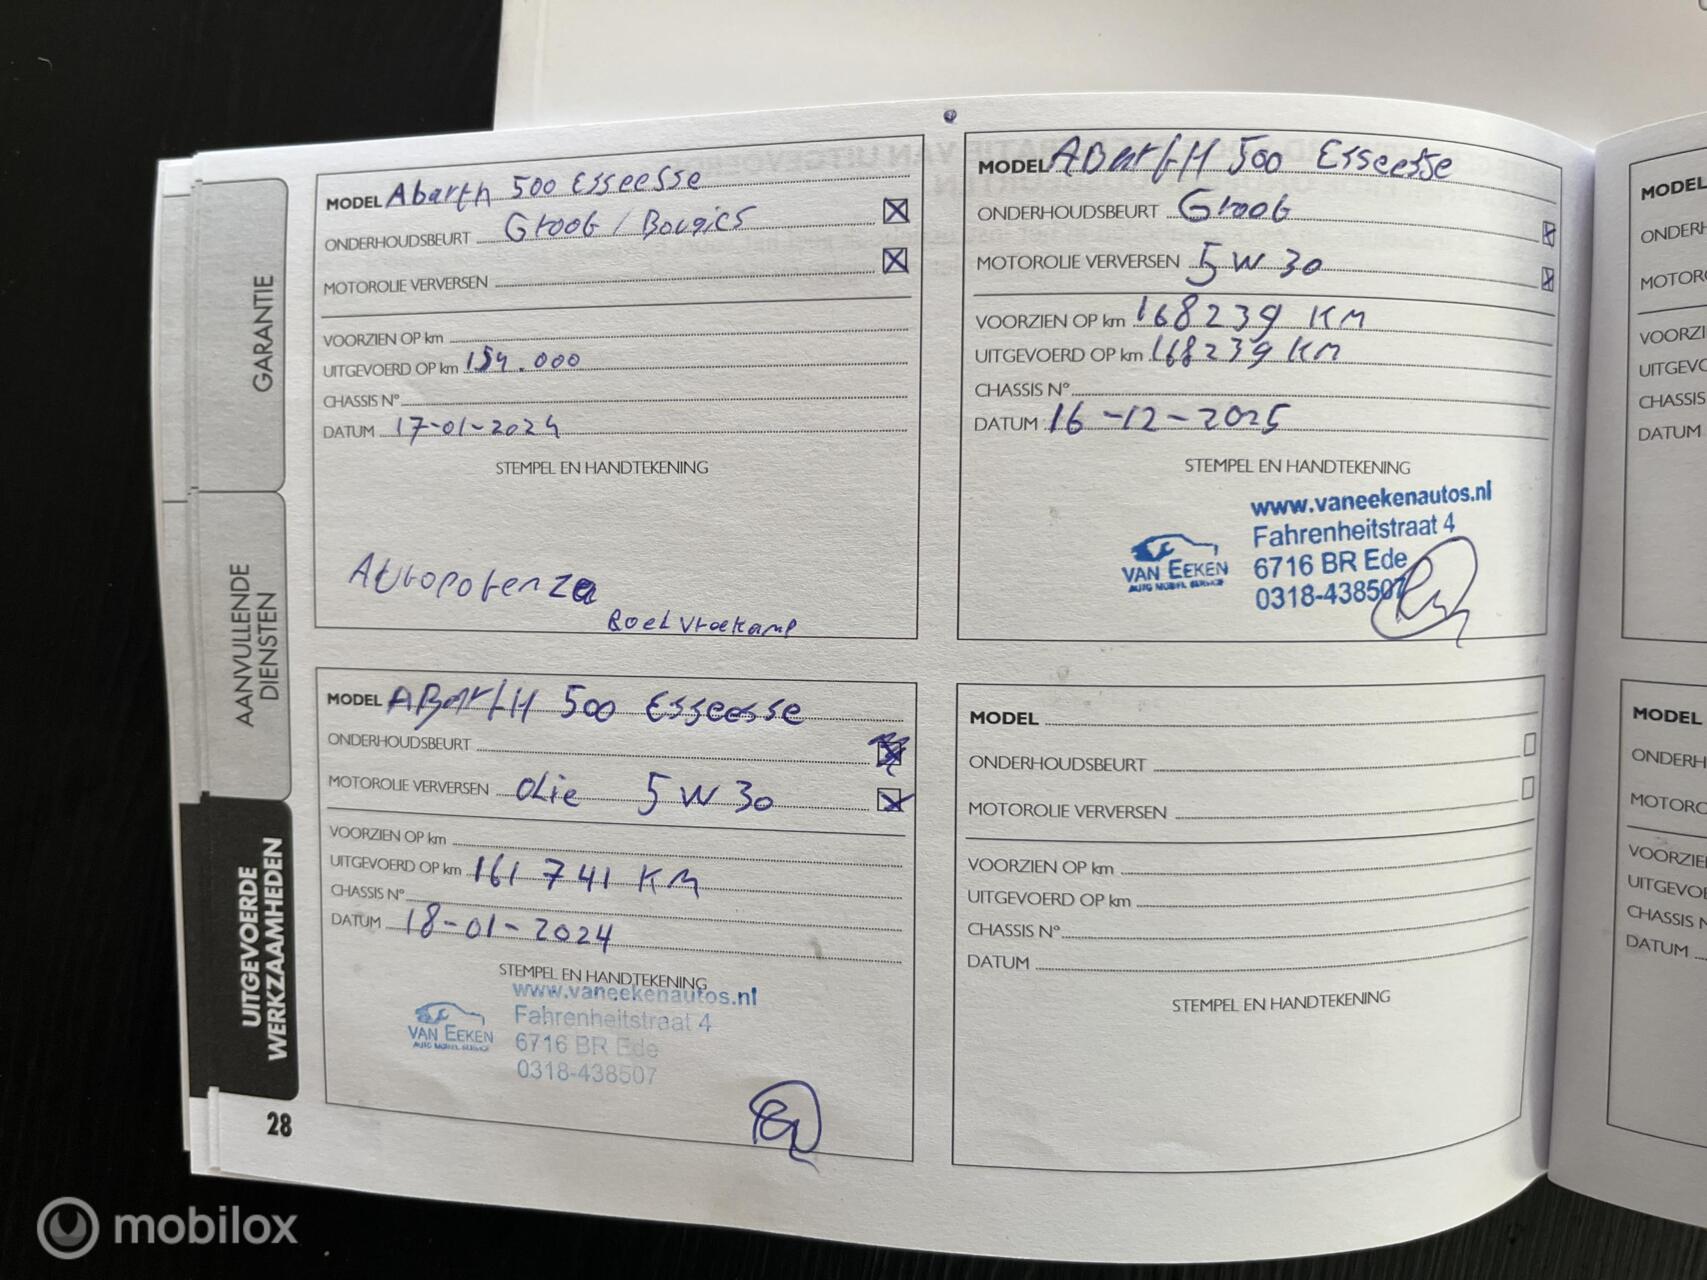 GARANTIE
AANVULLENDE
DIENSTEN
UITGEVOERDE
WERKZAAMHEDEN
28
MODEL Abarth 500 Esseesse
ONDERHOUDSBEURT Groot / Bougies
MOTOROLIE VERVERSEN
VOORZIEN OP km
UITGEVOERD OP km 154.000
CHASSIS N°
DATUM 17-01-2024
STEMPEL EN HANDTEKENING
Autopotenza
Roel Vroekamp
MODEL ABarth 500 Esseesse
ONDERHOUDSBEURT Groot
MOTOROLIE VERVERSEN 5 W 30
VOORZIEN OP km 168239 KM
UITGEVOERD OP km 168239 KM
CHASSIS N°
DATUM 16-12-2025
STEMPEL EN HANDTEKENING
www.vaneekenautos.nl
Fahrenheitstraat 4
6716 BR Ede
0318-438507
VAN EEKEN
AUTO MOBIEL SERVICE
MODEL ABarth 500 Esseesse
ONDERHOUDSBEURT
MOTOROLIE VERVERSEN OLie 5 W 30
VOORZIEN OP km
UITGEVOERD OP km 161 741 KM
CHASSIS N°
DATUM 18-01-2024
STEMPEL EN HANDTEKENING
www.vaneekenautos.nl
Fahrenheitstraat 4
6716 BR Ede
0318-438507
VAN EEKEN
AUTO MOBIEL SERVICE
MODEL
ONDERHOUDSBEURT
MOTOROLIE VERVERSEN
VOORZIEN OP km
UITGEVOERD OP km
CHASSIS N°
DATUM
STEMPEL EN HANDTEKENING
MODEL
ONDERH
MOTOR
VOORZI
UITGEVO
CHASSIS
DATUM
MODEL
ONDERH
MOTORO
VOORZIE
UITGEVOE
CHASSIS N
DATUM
mobilox